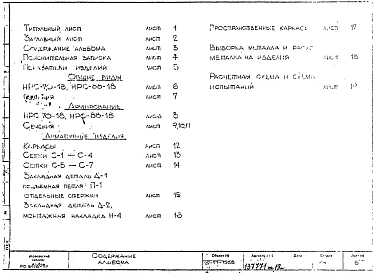 Титульный лист лист 1
Заглавный лист лист 2
Содержание альбома лист 3
Пояснительная записка лист 4
Показатели изделий лист 5
Общие виды
НРС-70-18, НРС-88-18 лист 6
лист 7
Армирование
НРС 70-18, НРС-88-18 лист 8
Сечения лист 9,10,11
Арматурные изделия
Каркасы лист 12
Сетки С-1 — С-4 лист 13
Сетки С-5 — С-7 лист 14
Закладная деталь Д-1
подъемная петля П-1
отдельные стержни лист 15
Закладная деталь Д-2,
монтажная накладка Н-4 лист 16
Пространственные каркасы лист 17
Выборка металла и расход
металла на изделия лист 18
Расчетная схема и схема
испытаний лист
Содержание
альбома